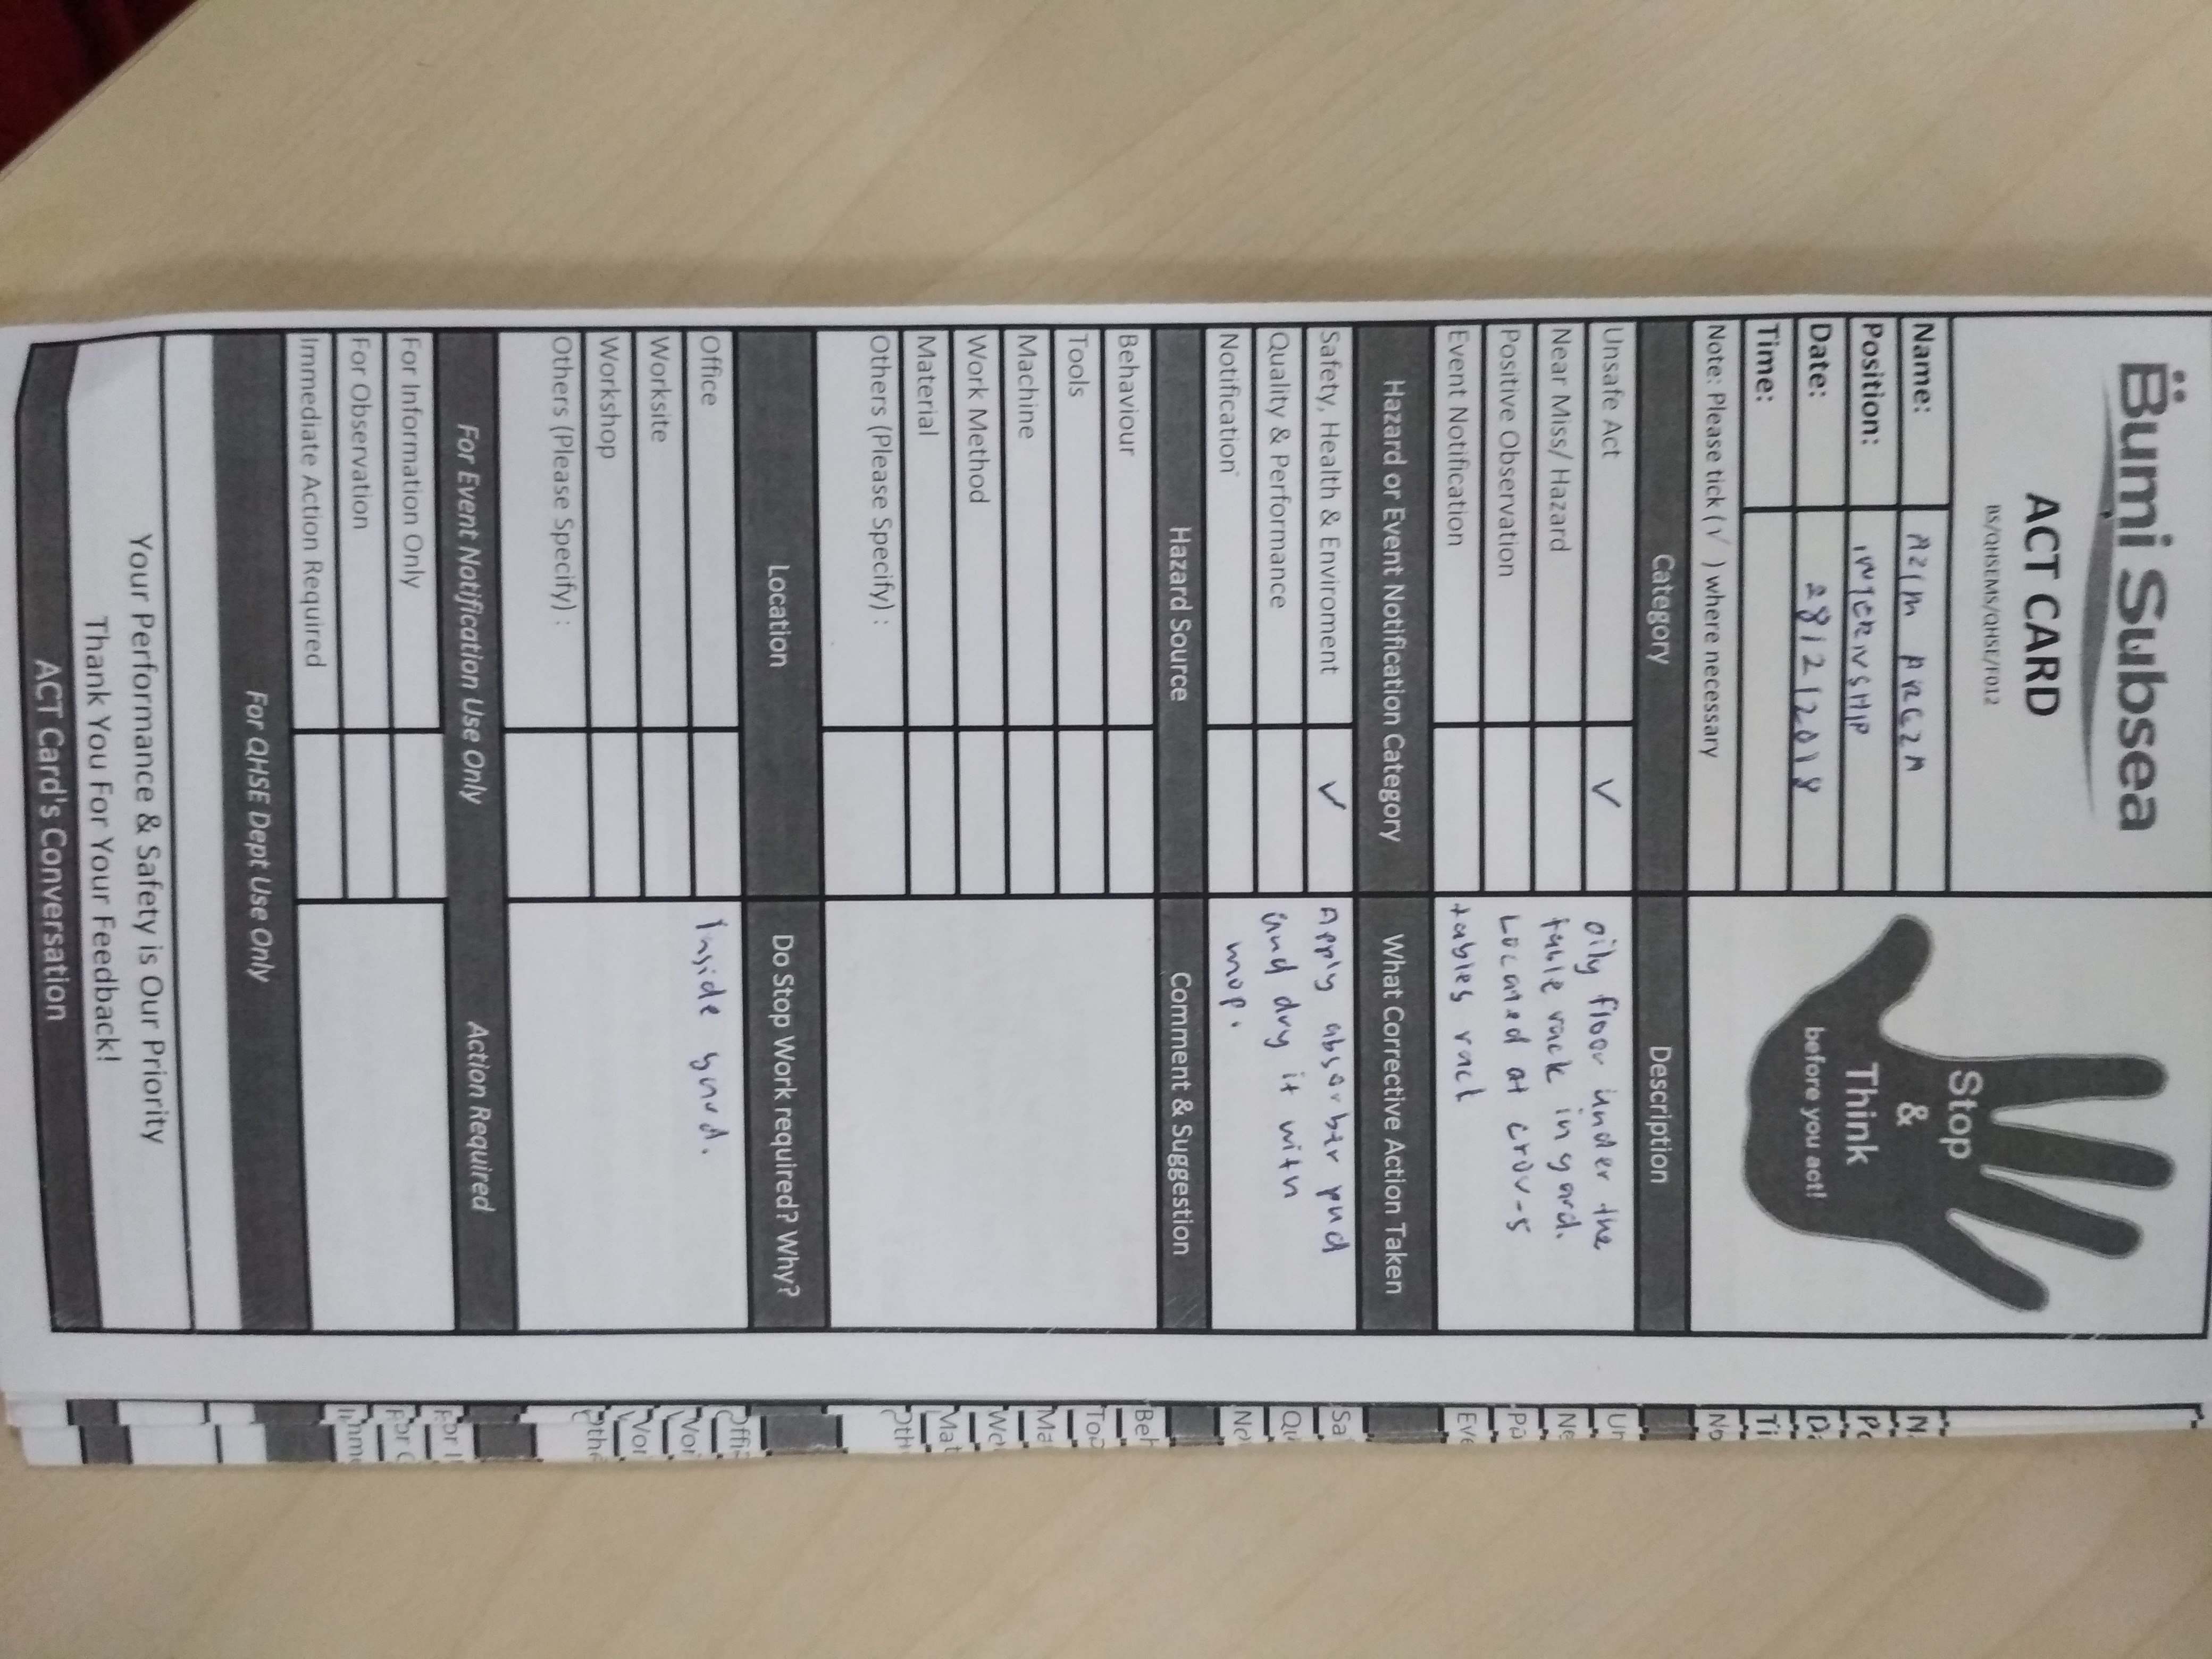 Bumi Subsea
ACT CARD
BS/QHSEMS/QHSE/F012
Stop
&
Think
before you act!
Name: AZIM
Position: INTERNSHIP
Date: 28/12/2018
Time:
Note: Please tick (√ ) where necessary
Category Description
Unsafe Act ✓ oily floor under the
Near Miss/ Hazard table rack in yard.
Positive Observation Located at crov-5
Event Notification tables rack
Hazard or Event Notification Category What Corrective Action Taken
Safety, Health & Enviroment ✓ Apply absorber pad
Quality & Performance and dry it with
Notification mop.
Hazard Source Comment & Suggestion
Behaviour
Tools
Machine
Work Method
Material
Others (Please Specify) :
Location Do Stop Work required? Why?
Office Inside yard.
Worksite
Workshop
Others (Please Specify) :
For Event Notification Use Only Action Required
For Information Only
For Observation
Immediate Action Required
For QHSE Dept Use Only
Your Performance & Safety is Our Priority
Thank You For Your Feedback!
ACT Card's Conversation